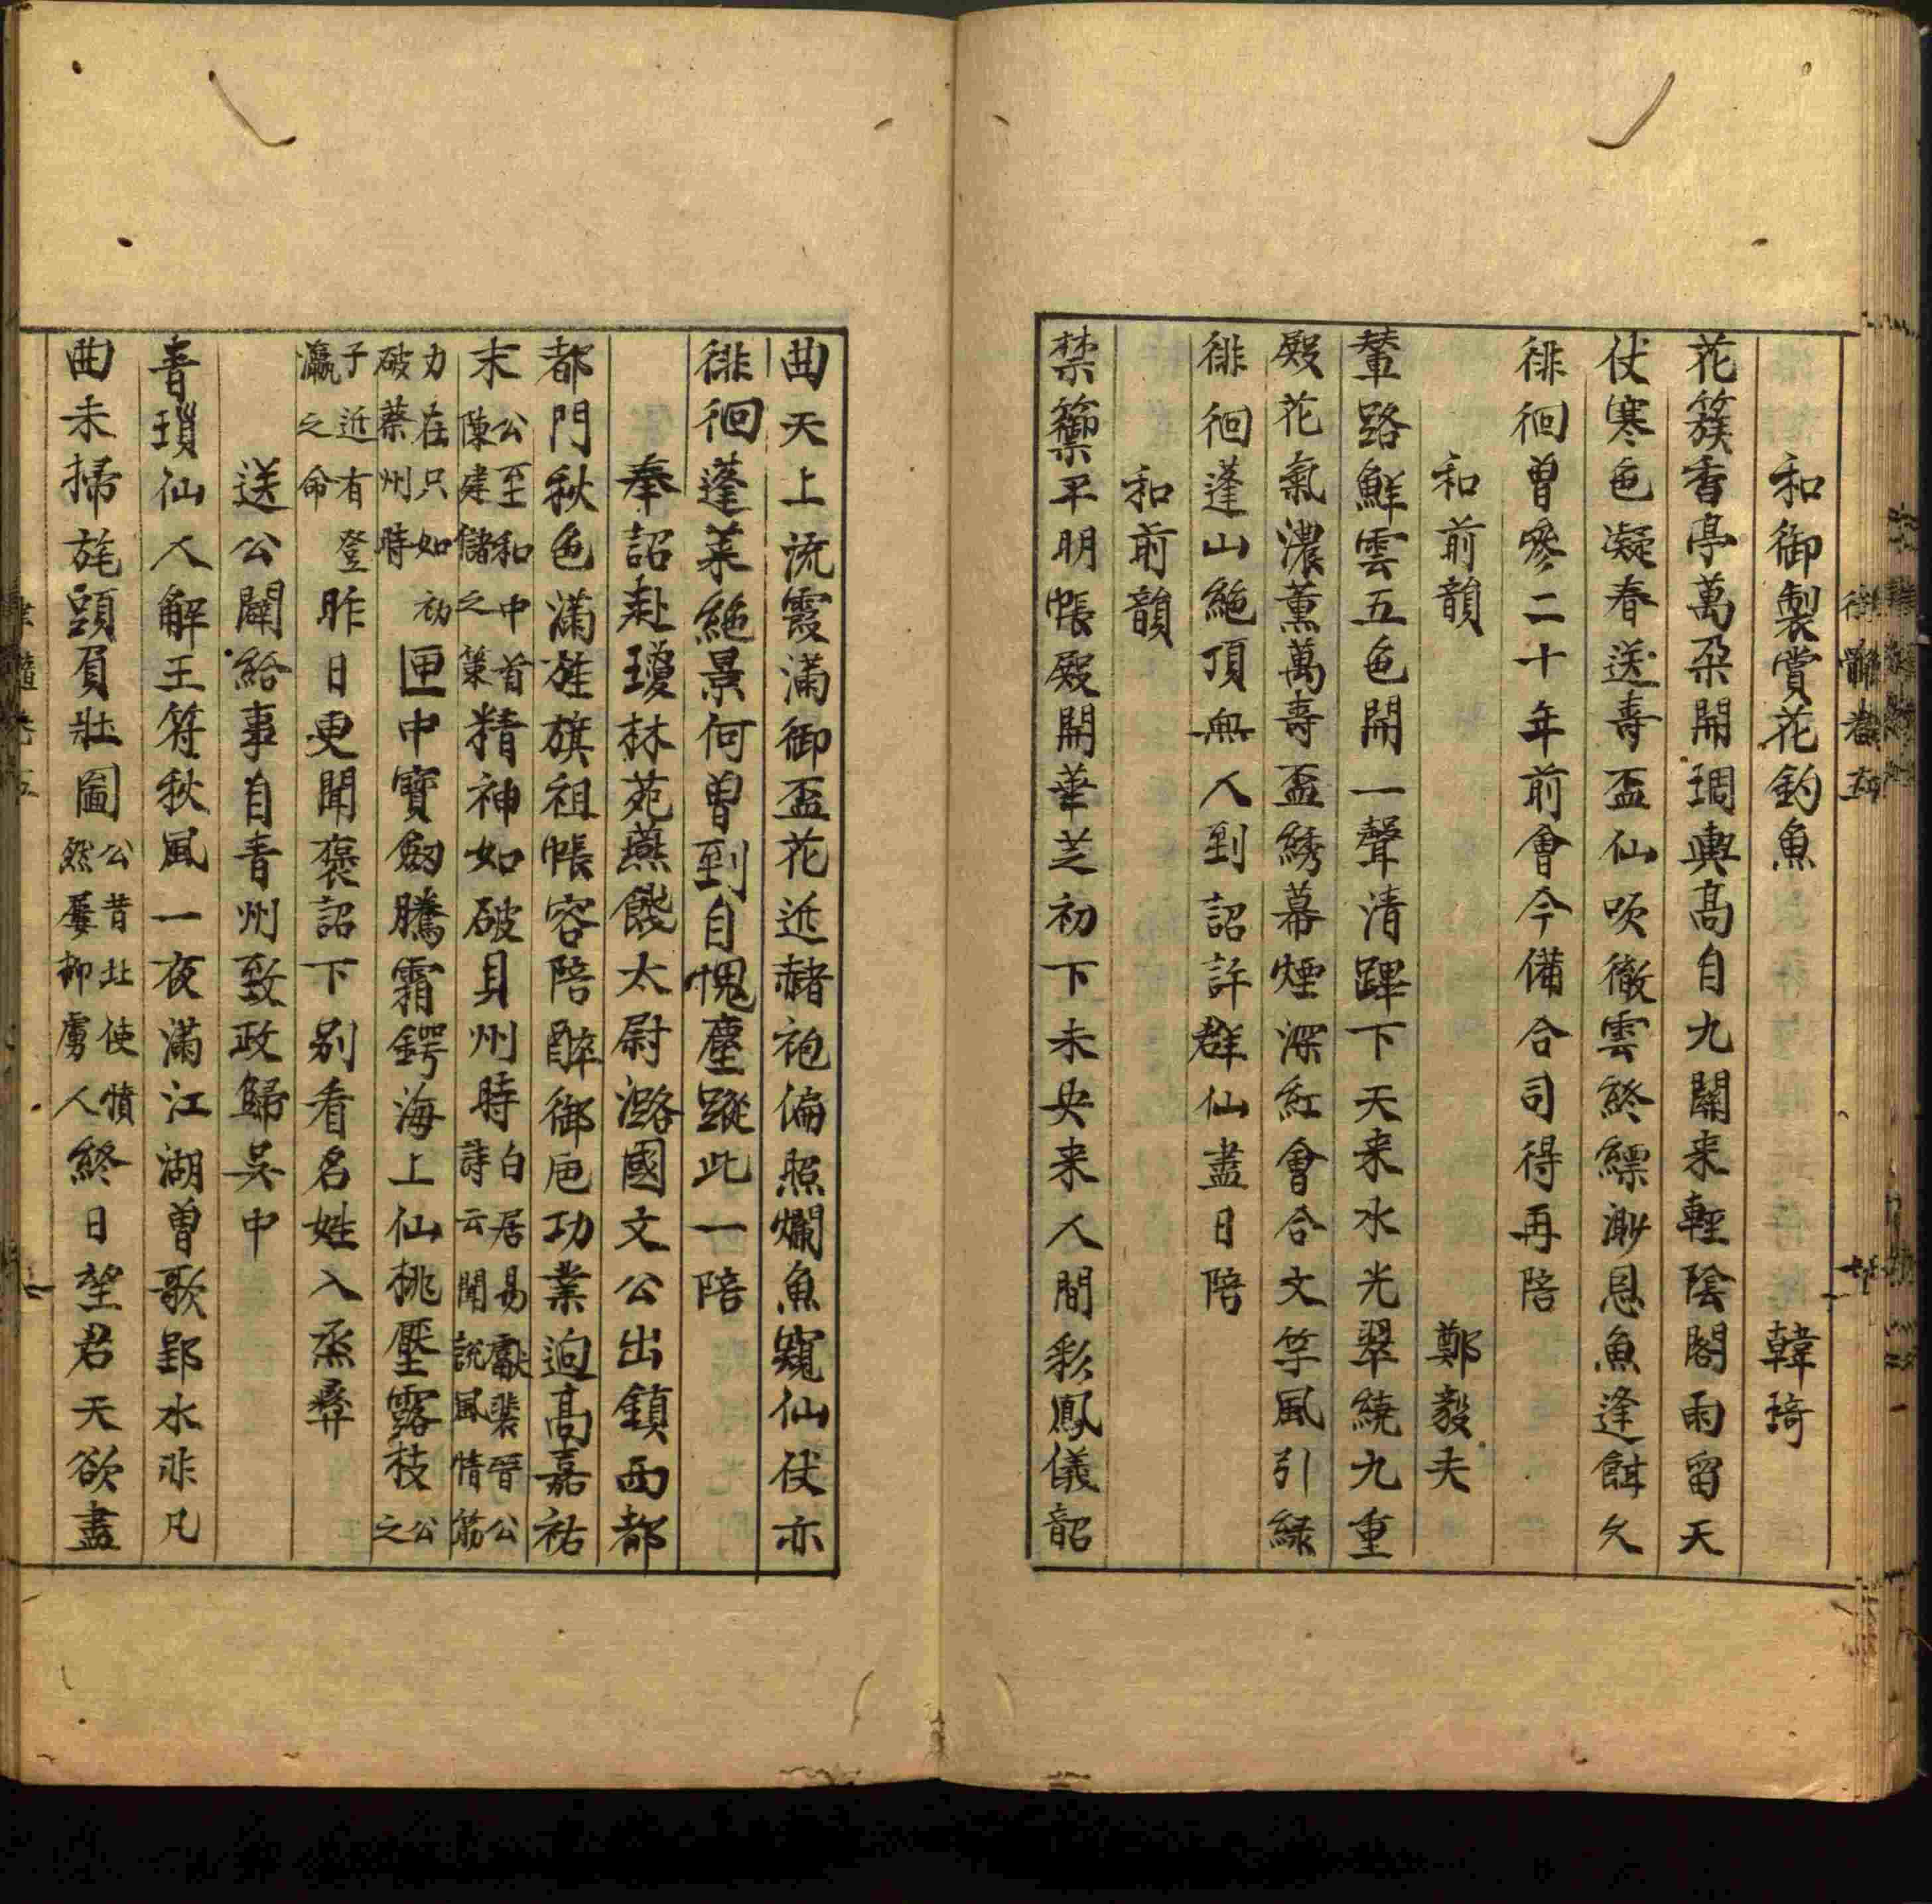 和御製賞花釣魚 韓琦
花簇香亭萬朶開琱輿高自九關来輕陰閣雨留天
仗寒色凝春送壽盃仙吹徹雲終縹渺恩魚逢餌久
徘徊曽參二十年前會今備台司得再陪
和前韻 鄭毅夫
輦路鮮雲五色開一聲清蹕下天来水光翠繞九重
殿花氣濃薰萬壽盃綉幕煙深紅會合文竿風引綠
徘徊蓬山絶頂無人到詔許群仙盡日陪
和前韻
禁籞平明帳殿開華芝初下未央来人間彩鳳儀韶
曲天上流霞滿御盃花近赭袍偏照爛魚窺仙仗亦
徘徊蓬莱絶景何曽到自愧塵蹤此一陪
奉詔赴瓊林苑燕餞太尉潞國文公出鎮西都
都門秋色滿旌旗祖帳容陪醉御巵功業迥高嘉祐
末公至和中首陳建儲之策精神如破貝州時白居易獻裴晉公詩云聞説風情筋
力在只如初破蔡州時匣中寶劒騰霜鍔海上仙桃壓露枝公之
子近有登瀛之命昨日更聞褒詔下别看名姓入烝彝
送公闢給事自青州致政歸吳中
青瑣仙人解玉符秋風一夜滿江湖曽歌郢水非凡
曲未掃旄頭負壯圖公昔北使憤然屢抑虜人終日望君天欲盡